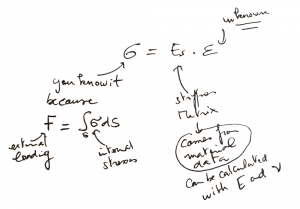 unknown
σ = Es · ε
you know it
because
stiffness
Matrix
F = ∫σ ds
external
loading
internal
stresses
comes from
material
data
can be calculated
with E and ν